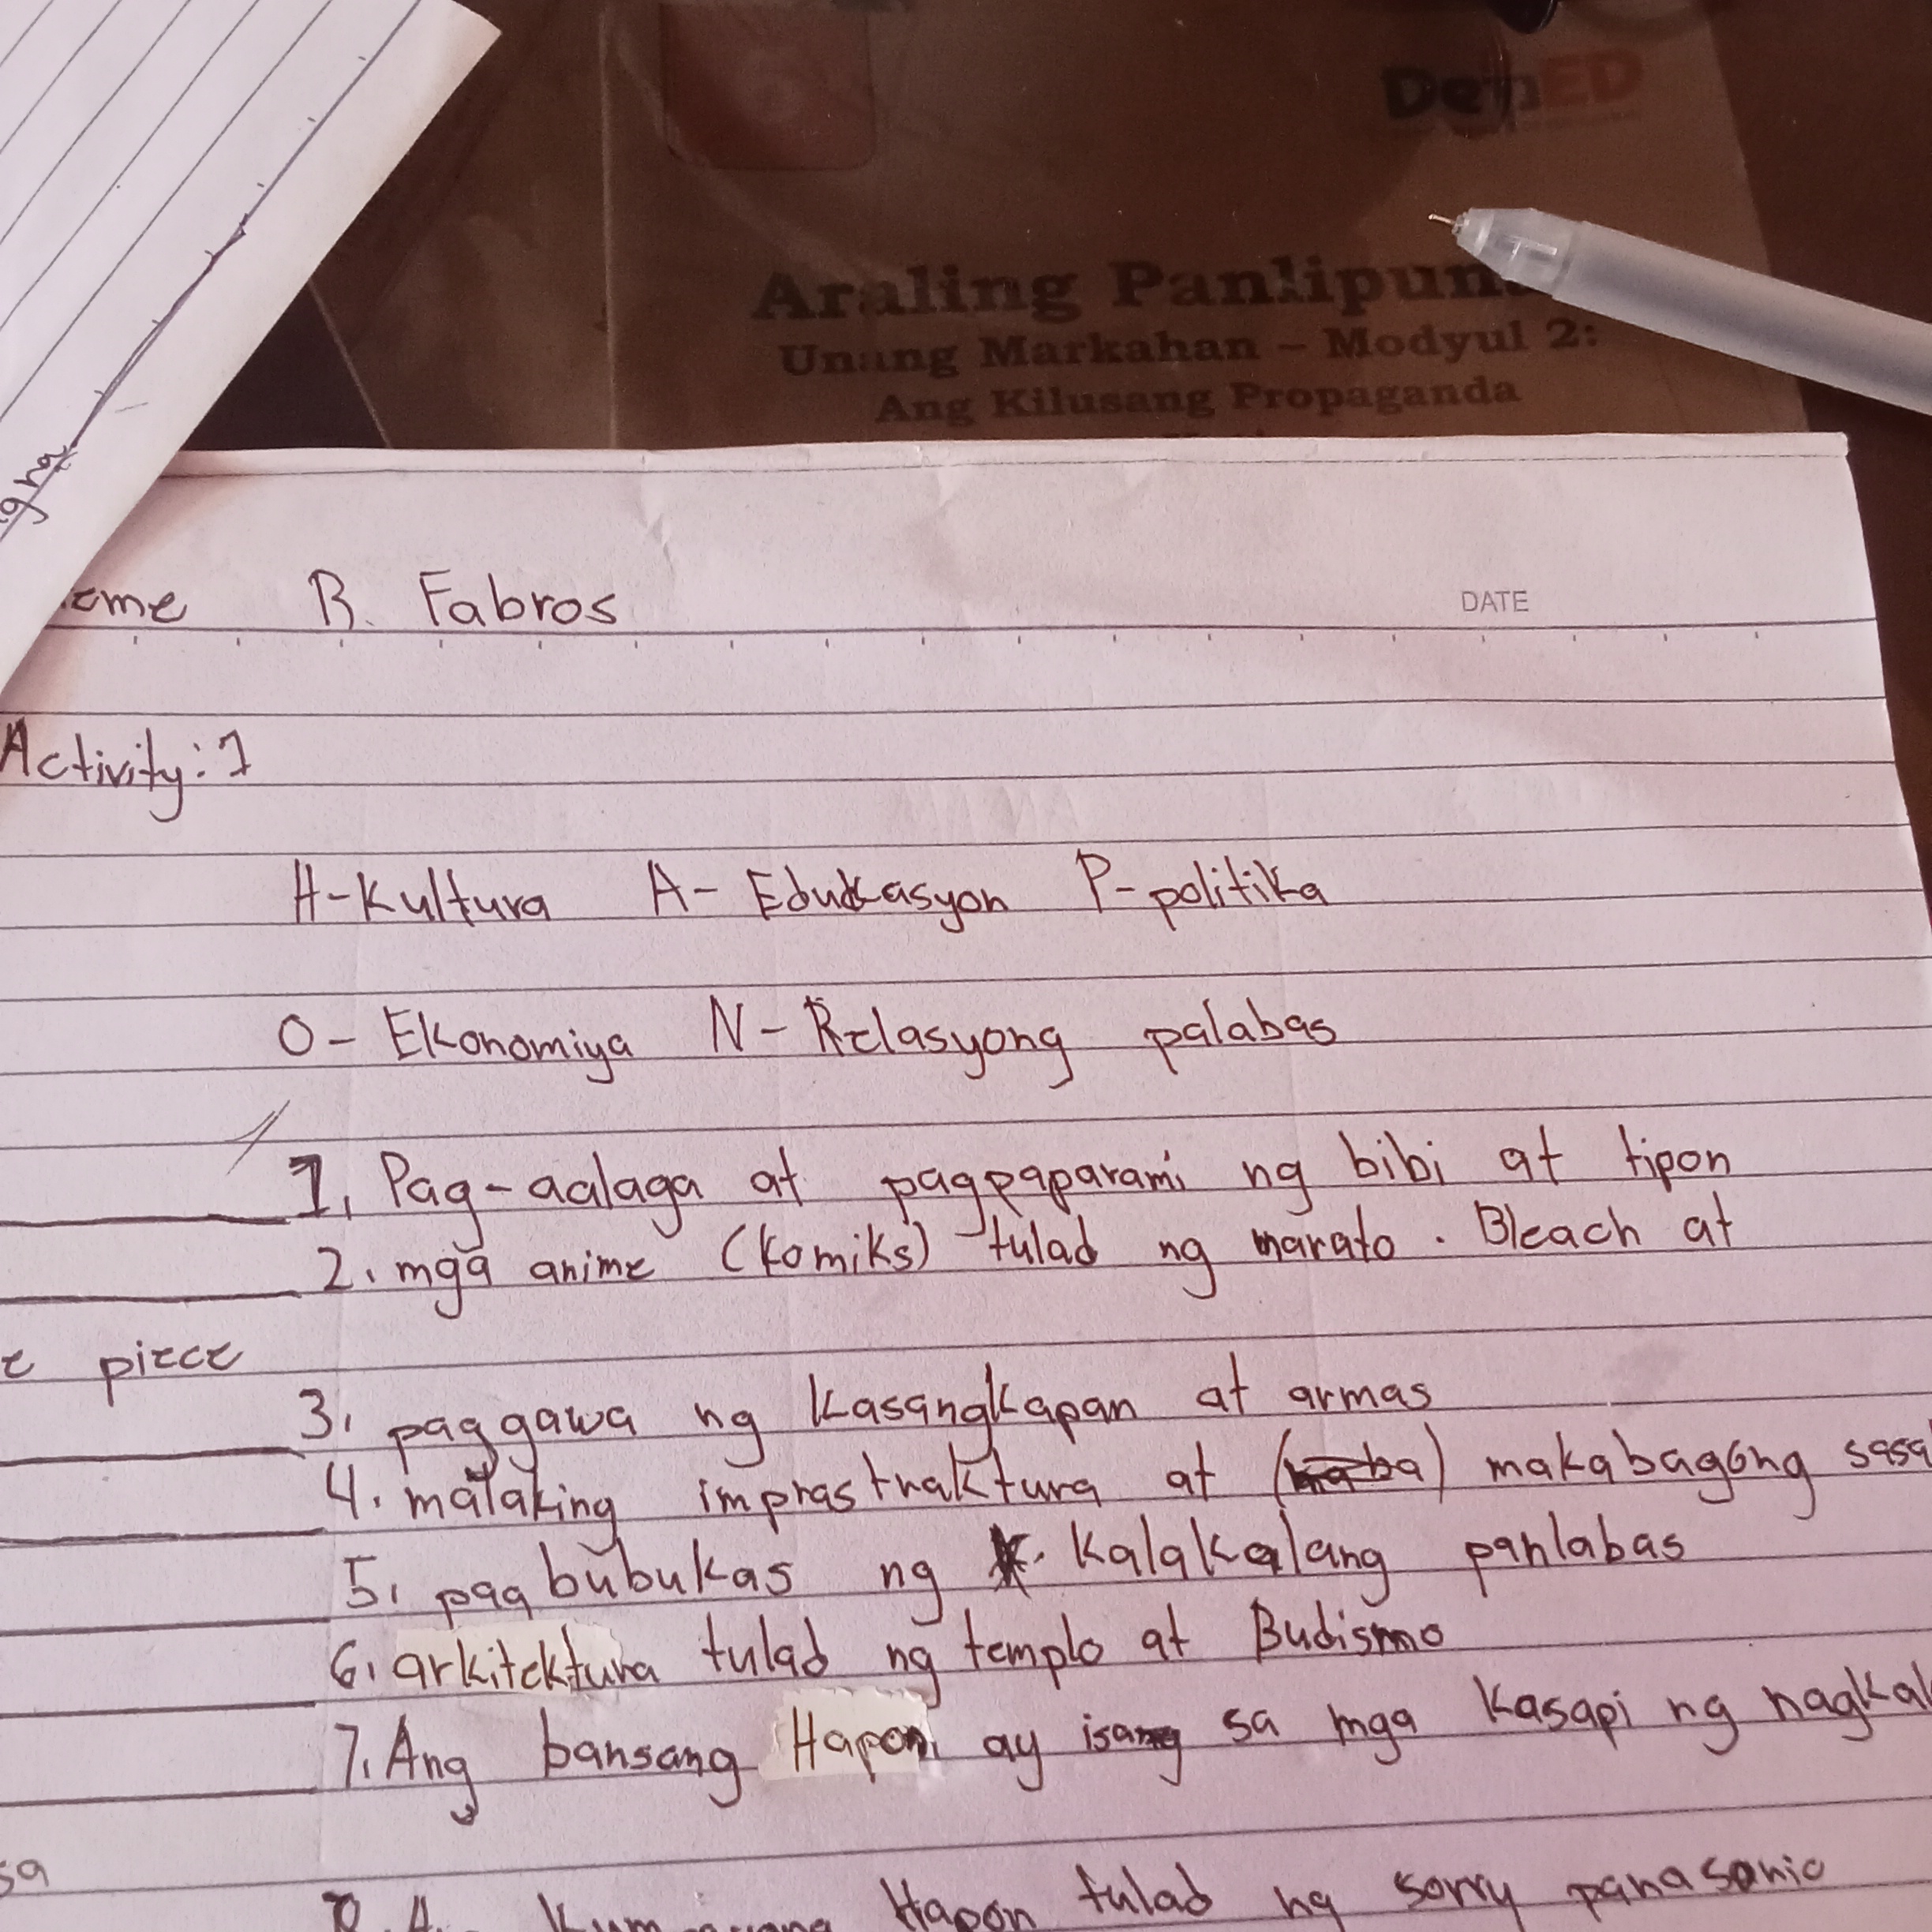 DepED
Araling Panlipuna
Unang Markahan – Modyul 2:
Ang Kilusang Propaganda
eme B. Fabros
DATE
Activity: 1
H-Kultura A- Edukasyon P-politika
O- Ekonomiya N- Relasyong palabas
1. Pag-aalaga at pagpaparami ng bibi at tipon
2. mga anime (Komiks) tulad ng marato. Bleach at
e piece
3. paggawa ng Kasangkapan at armas
4. malaking imprastraktura at makabagong sasa
5. pag bubukas ng Kalakalang panlabas
6. arkitektura tulad ng templo at Budismo
7. Ang bansang Hapon ay isang sa mga Kasapi ng nagkal
sa
Hapon tulad ng sorry panasonic